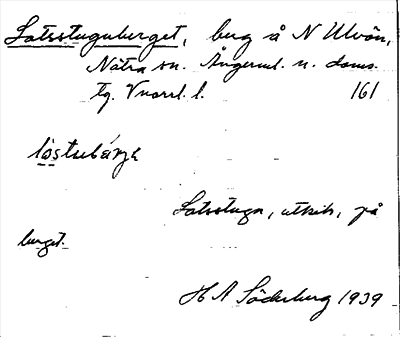 Lotsstuguberget, berg å N Ulvön,
Nätra sn. Ångerml. n. doms.
tg. Vnorrl. l. 161
Lotsstuga, utkik, på
berget.
H A Söderberg 1939